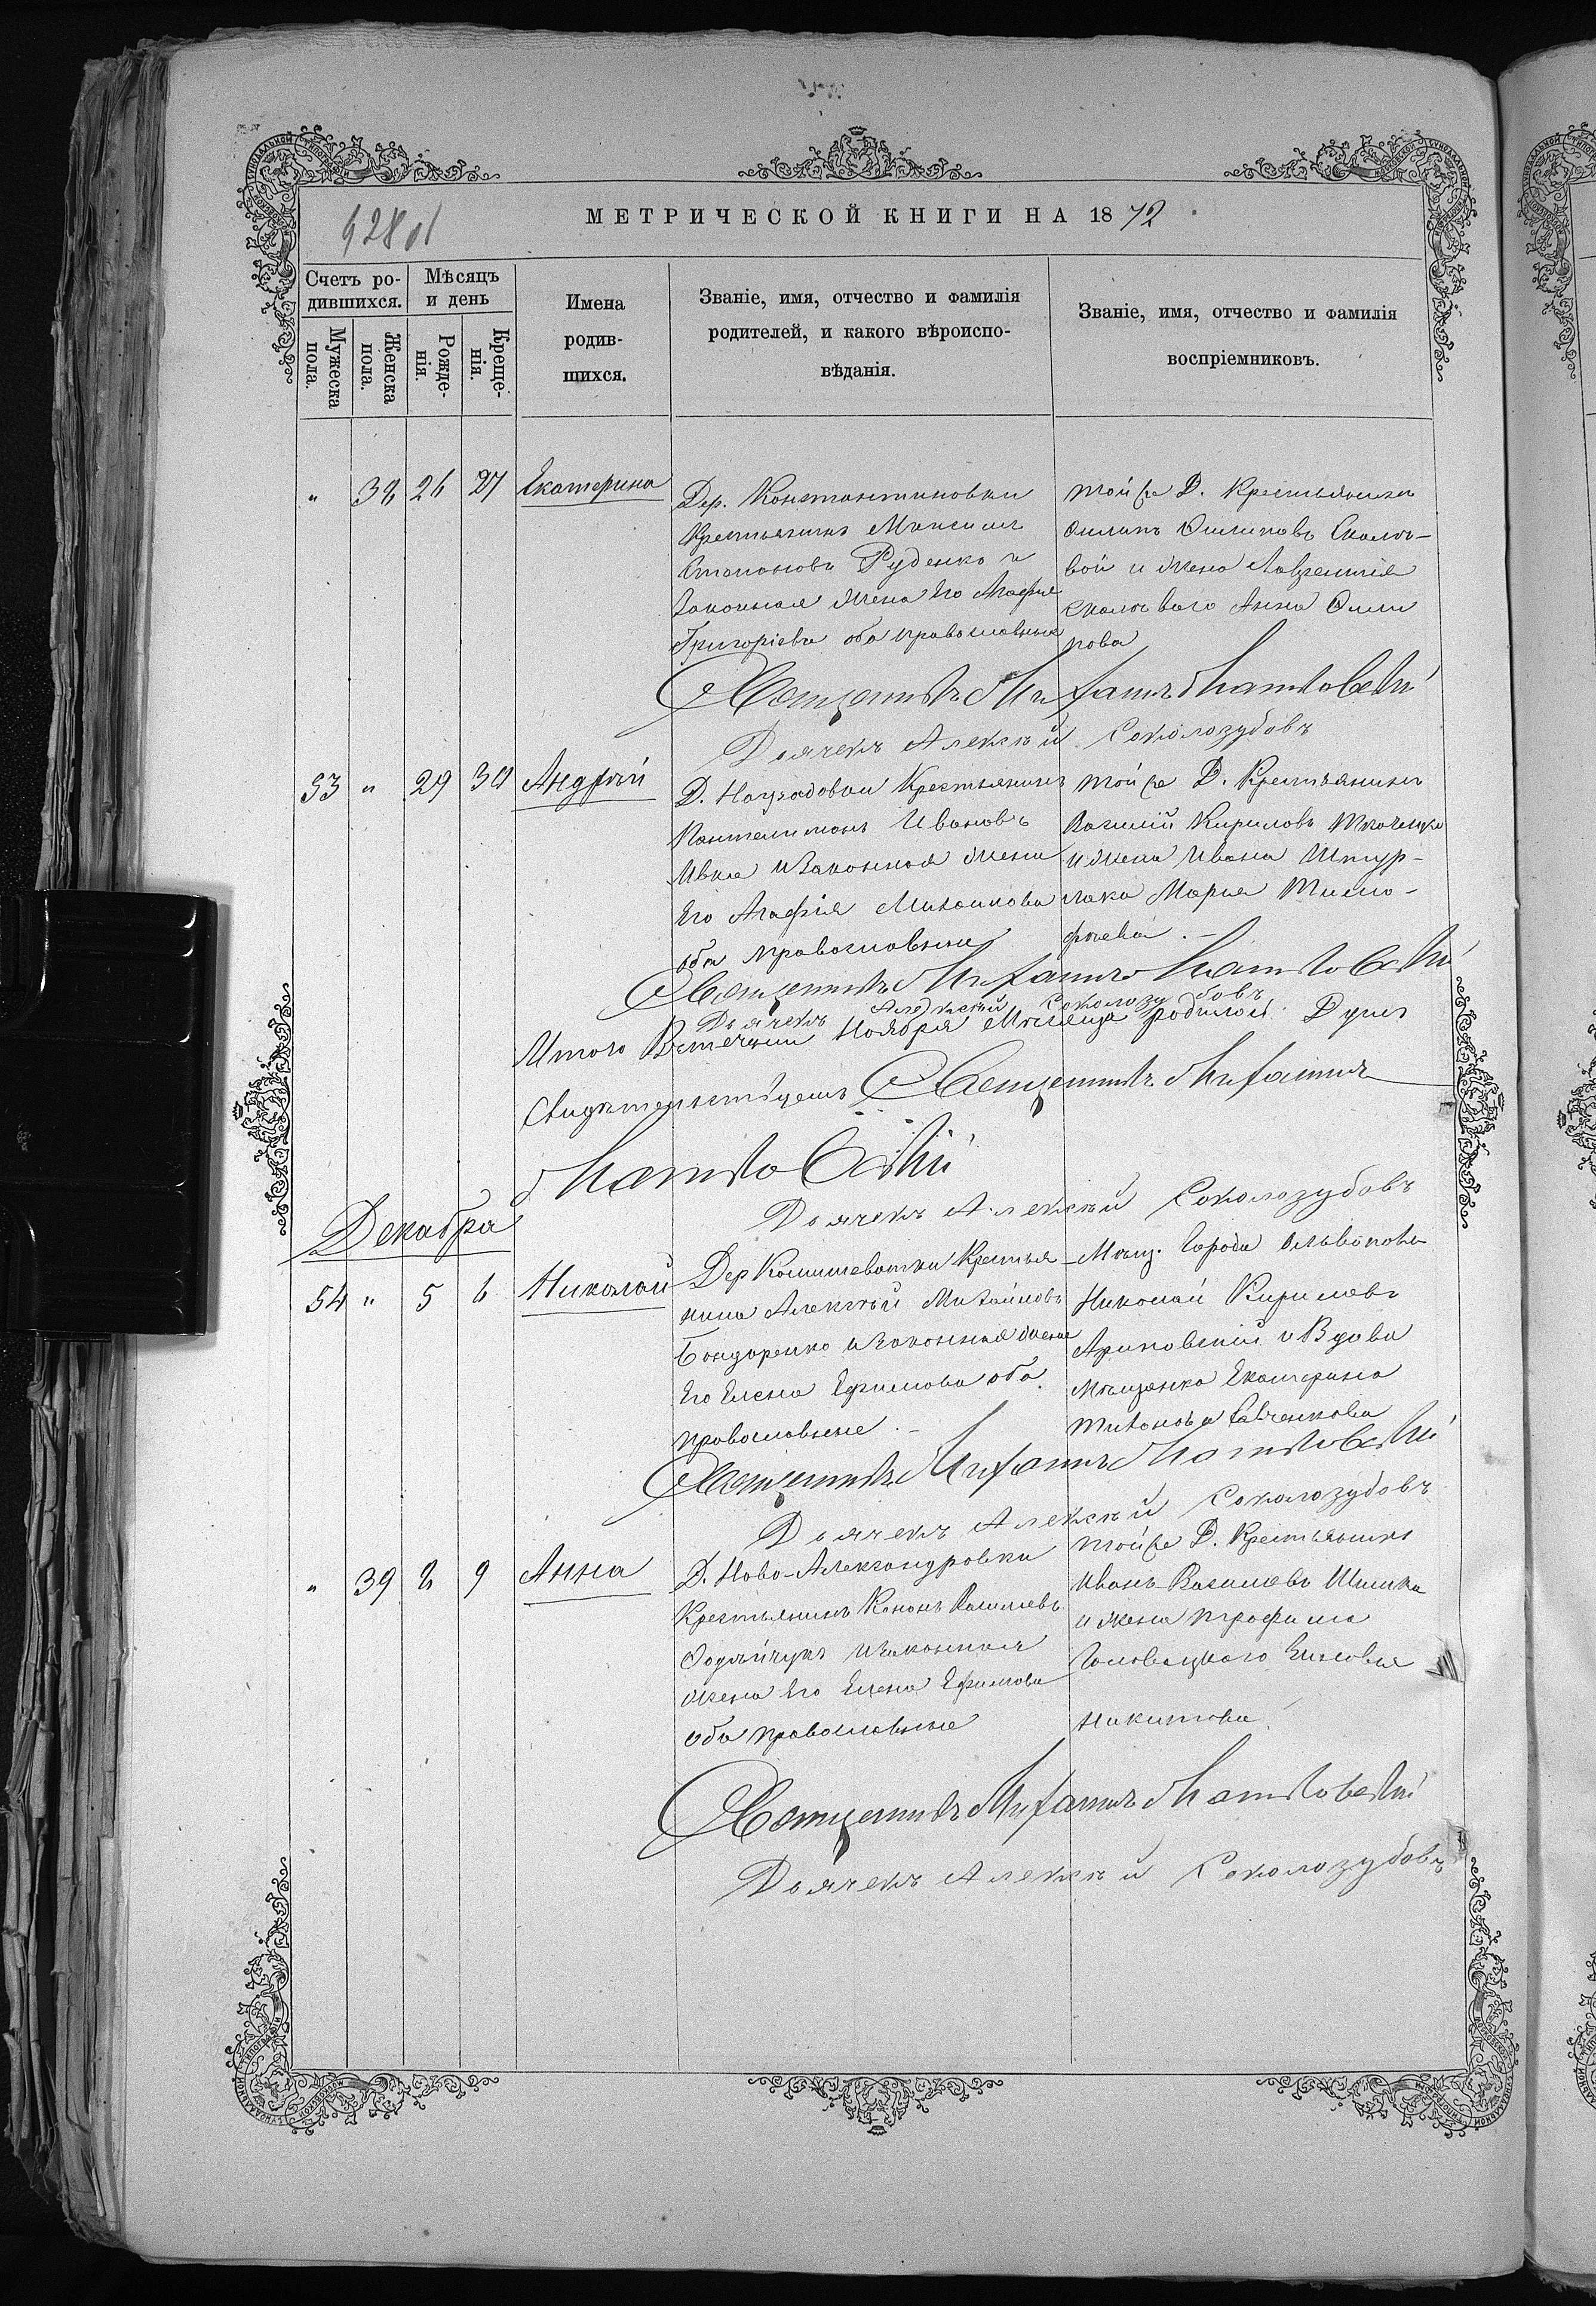 МЕТРИЧЕСКОЙ КНИГИ НА 1872
928 об
Счетъ родившихся.
Мужеска пола.
Женска пола.
Мѣсяцъ и день
Рожденія.
Крещенія.
Имена
родив-
шихся.
Званіе, имя, отчество и фамилія
родителей, и какого вѣроиспо-
вѣданія.
Званіе, имя, отчество и фамилія
воспріемниковъ.
" 38 26 27 Екатерина
Дер. Константиновки
Крестьянинъ Максимъ
Степановъ Руденко и
Законная Жена Его Агафія
Григоріева оба православные
Той же Д. Крестьянинъ
Филипъ Филиповъ
и Жена Лаврентія
Анна Фили
пова
Священникъ
Дьячекъ Алексѣй Соколозубовъ
53 " 29 30 Андрей
Д. Крестьянинъ
Пантелимонъ Ивановъ
Ивко и Законная Жена
Его Агафія Михаилова
оба православные
Той же Д. Крестьянинъ
Василій Кириловъ Ткаченко
и Жена Ивана Штур-
мака Марія Тимо-
фѣева.
Священникъ
Дьячекъ Алексѣй Соколозубовъ
Итого Втеченіи Ноября Мѣсяца родилось Душъ
Свидѣтельствуемъ Священникъ
Дьячекъ Алексѣй Соколозубовъ
Декабрь
54 " 5 6 Николай
Дер Комишеватки Крестья-
нинъ Алексѣй Михайловъ
Бондаренко и Законная Жена
Его Елена Ефимова оба
православные.
Мѣщ. Города
Николай Кириловъ
и Вдова
Мѣщанка Екатерина
Титова Савченкова
Священникъ
Дьячекъ Алексѣй Соколозубовъ
" 39 8 9 Анна
Д. Ново-Александровки
Крестьянинъ Кононъ Васильевъ
и Законная
Жена Его Елена Ефимова
оба православные
Той же Д. Крестьянинъ
Иванъ Васильевъ Шишка
и Жена Трофима
Головацкого Зиновія
Никитова.
Священникъ
Дьячекъ Алексѣй Соколозубовъ